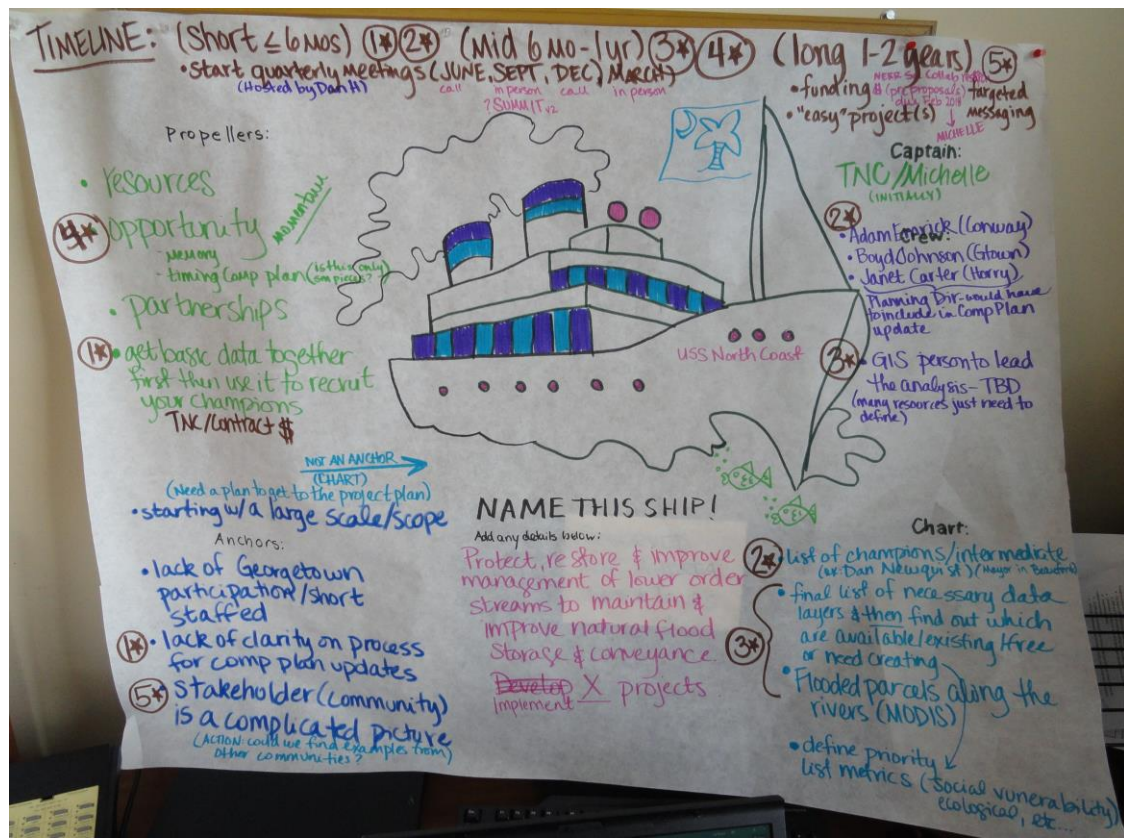 TIMELINE: (Short ≤ 6 mos) 1* 2* (Mid 6 mo-1yr) 3* 4* (long 1-2 years) 5*
• start quarterly meetings (JUNE, SEPT, DEC, MARCH)
(Hosted by Dan H) call in person call in person
? SUMMIT x2
• funding
NERR Sci Collab
$ (pre proposals)
due Feb 2018
↓
MICHELLE
targeted
messaging
• "easy" project(s)
Propellers:
• resources
4* opportunity
momentum
memory
- timing Comp plan (is this only
? ?)
• partnerships
1* • get basic data together
first then use it to recruit
your champions
TNC/contract $
NOT AN ANCHOR →
(CHART)
(Need a plan to get to the project plan)
• starting w/a large scale/scope
Anchors:
• lack of Georgetown
participation/short
staffed
1* • lack of clarity on process
for comp plan updates
5* stakeholder (community)
is a complicated picture
(ACTION: could we find examples from
other communities?)
USS North Coast
NAME THIS SHIP!
Add any details below:
Protect, restore & improve
management of lower order
streams to maintain &
improve natural flood
storage & conveyance
Develop X projects
implement
Captain:
TNC/Michelle
(INITIALLY)
2*
Crew:
• Adam Emrick (Conway)
• Boyd Johnson (Gtown)
• Janet Carter (Horry)
Planning Dir-would have
to include in Comp Plan
update
3* • GIS person to lead
the analysis - TBD
(many resources just need to
define)
Chart:
2* • list of champions/intermediate
(ex: Dan Newquist) (Mayor in Beaufort)
3*
• final list of necessary data
layers & then find out which
are available/existing/free
or need creating
• Flooded parcels along the
rivers (MODIS)
• define priority
list metrics (social vunerability)
ecological, etc...